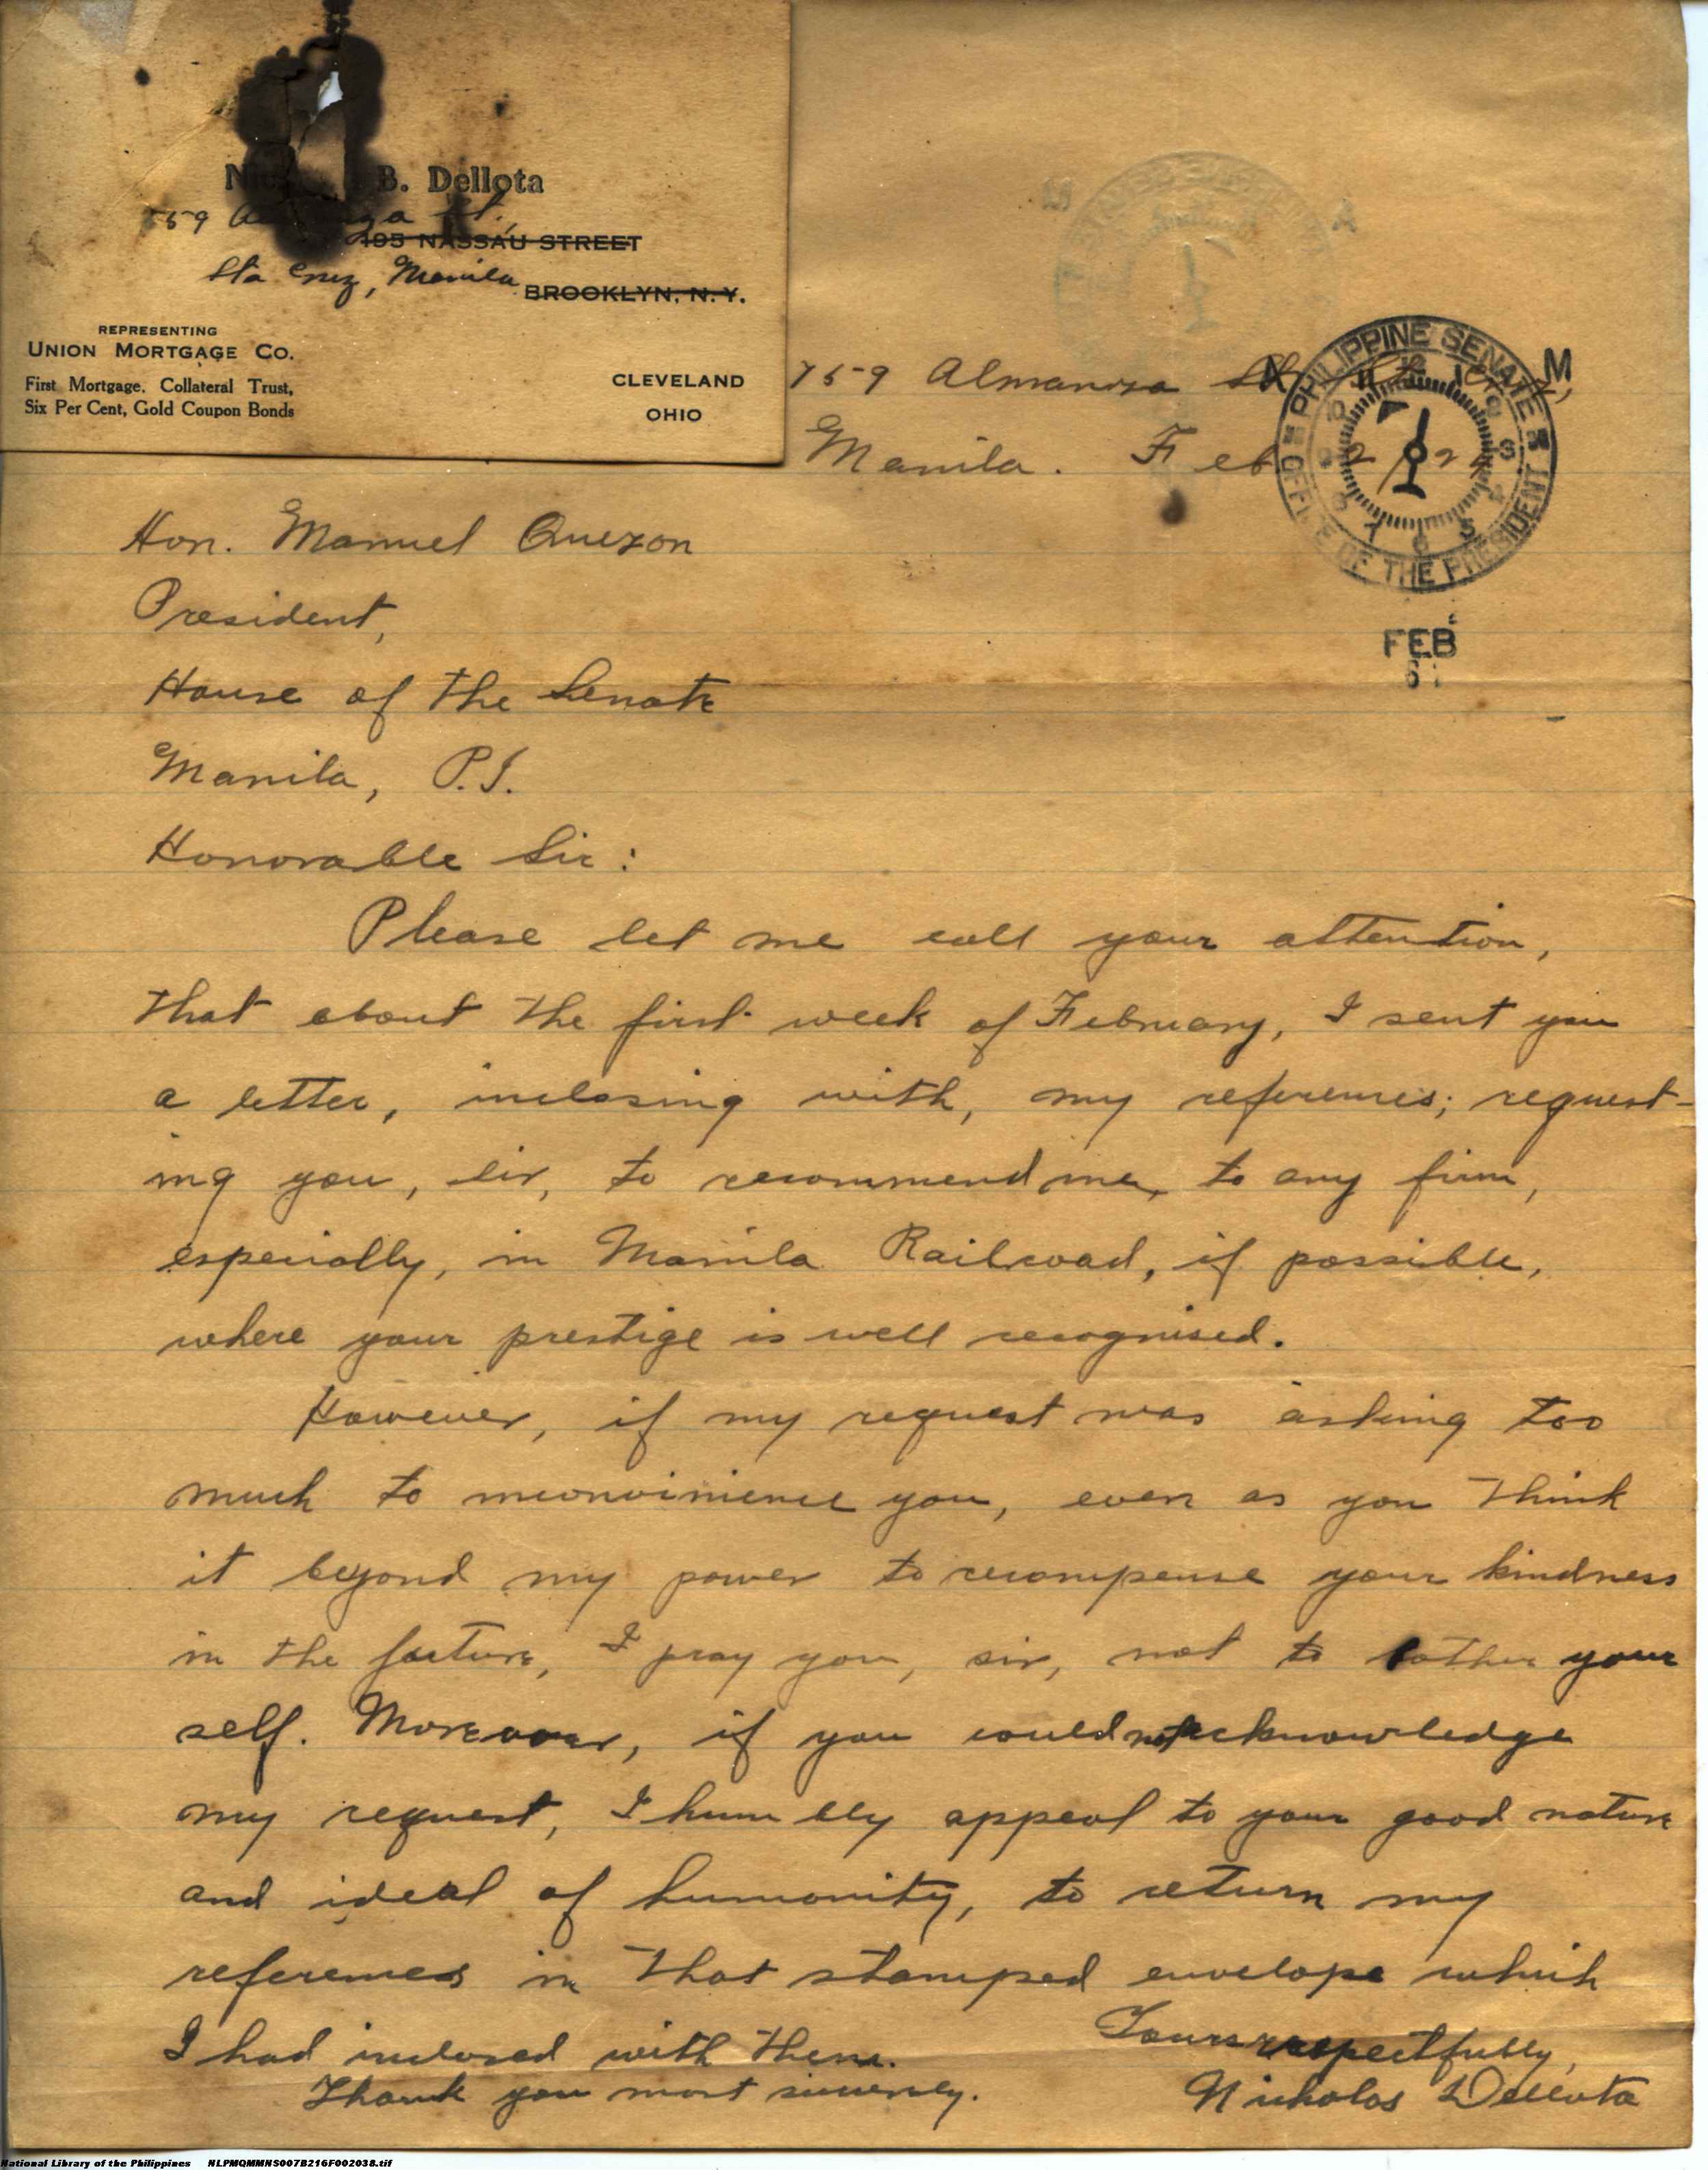 B. Dellota
St.,
195 NASSAU STREET
Sta Cruz, Manila
BROOKLYN, N.Y.
REPRESENTING
UNION MORTGAGE CO.
First Mortgage, Collateral Trust,
Six Per Cent, Gold Coupon Bonds
CLEVELAND
OHIO
759 Almansa St.
Manila. Feb
PHILIPPINE SENATE
OFFICE OF THE PRESIDENT
M
FEB
Hon. Manuel Quezon
President,
House of the Senate
Manila, P.I.
Honorable Sir:
Please let me call your attention,
that about the first week of February, I sent you
a letter, inclosing with, my references; request-
ing you, sir, to recommend me, to any firm,
especially, in Manila Railroad, if possible,
where your prestige is well recognised.
However, if my request was asking too
much to inconvinience you, even as you think
it beyond my power to recompense your kindness
in the future, I pray you, sir, not to bother your
self. Moreover, if you could not acknowledge
my request, I humbly appeal to your good nature
and ideal of humanity, to return my
references in that stamped envelope which
I had inclosed with them.
Thank you most sincerely.
Yours respectfully,
Nicholas Dellota
National Library of the Philippines NLPMQMMNS007B216F002038.tif